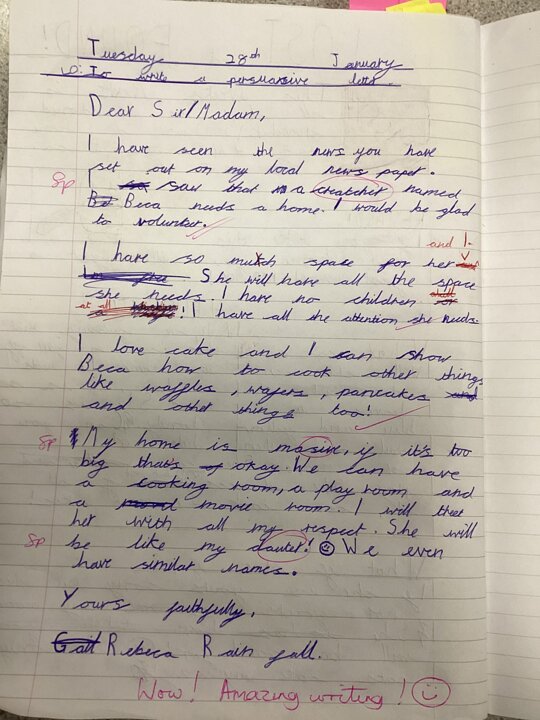 Tuesday 28th January
LO: To write a persuasive letter.
Dear Sir/Madam,
I have seen the news you have
set out on my local news paper.
Sp I saw that a creatcher named
Beca needs a home. I would be glad
to volunter.
and I
I have so much space for her
She will have all the space
she needs. I have no children
at all! I have all the attention she needs.
I love cake and I can show
Beca how to cook other things
like waffles, wafers, pancakes
and other things too!
Sp My home is masive, if it's too
big that's okay. We can have
a cooking room, a play room and
a movie room. I will treet
her with all my respect. She will
Sp be like my dauter! We even
have similar names.
Yours faithfully,
Rebeca Rain fall.
Wow! Amazing writing!